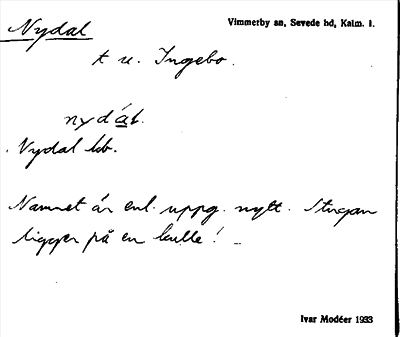 Nydal
Vimmerby sn, Sevede hd, Kalm. l.
t u. Ingebo.
nydáɫ.
Nydal kb.
Namnet är enl. uppg. nytt. Stugan
ligger på en kulle!
Ivar Modéer 1933